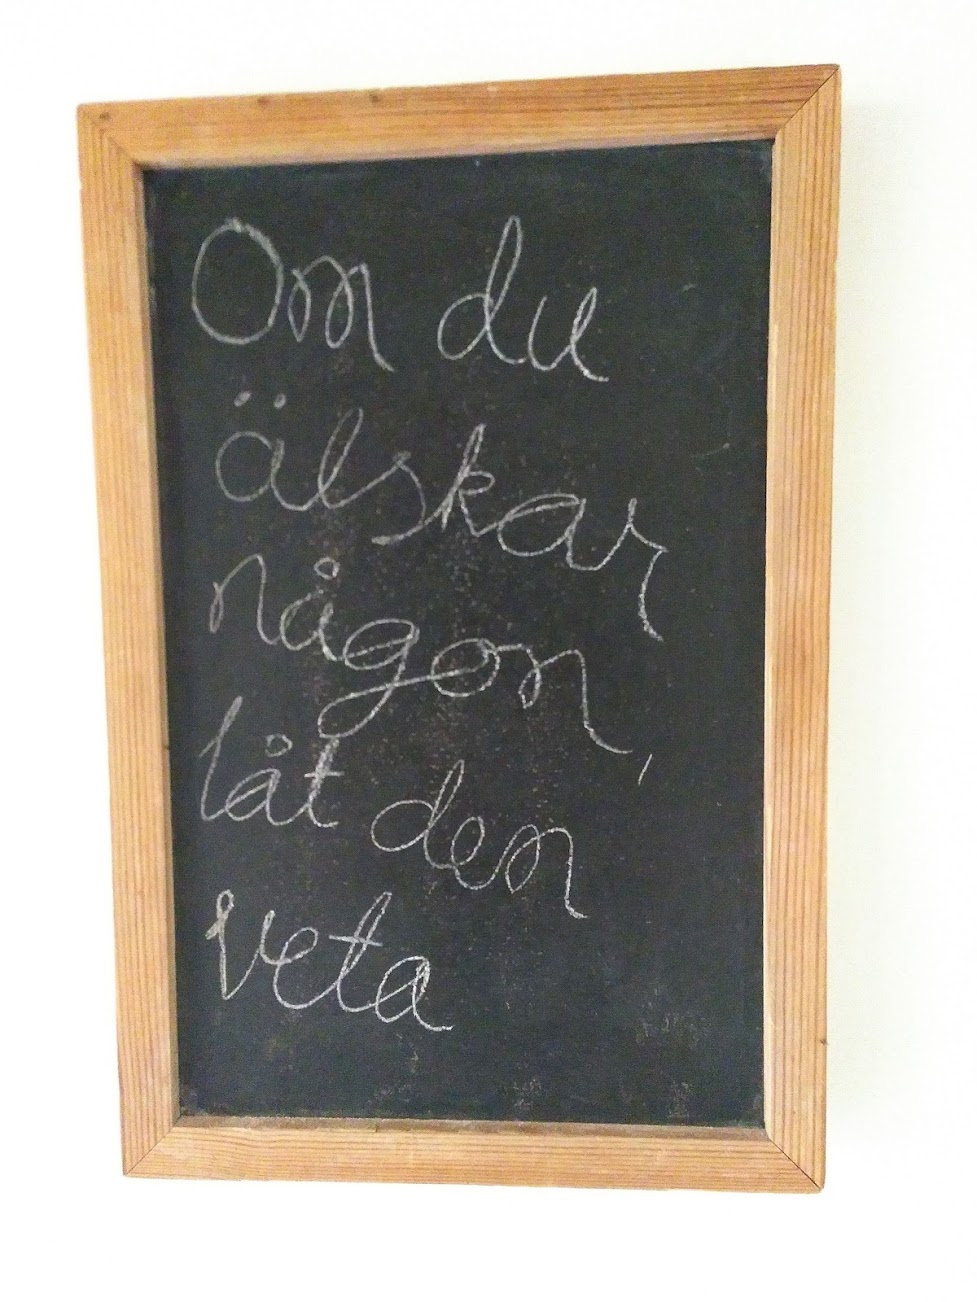 Om du
älskar
någon,
låt den
veta